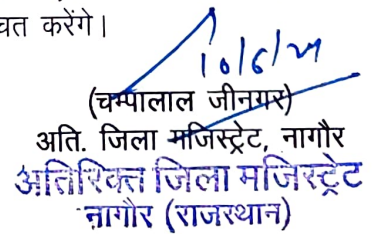 चत करेंगे।
10/6/24
(चम्पालाल जीनगर)
अति. जिला मजिस्ट्रेट, नागौर
अतिरिक्त जिला मजिस्ट्रेट
नागौर (राजस्थान)